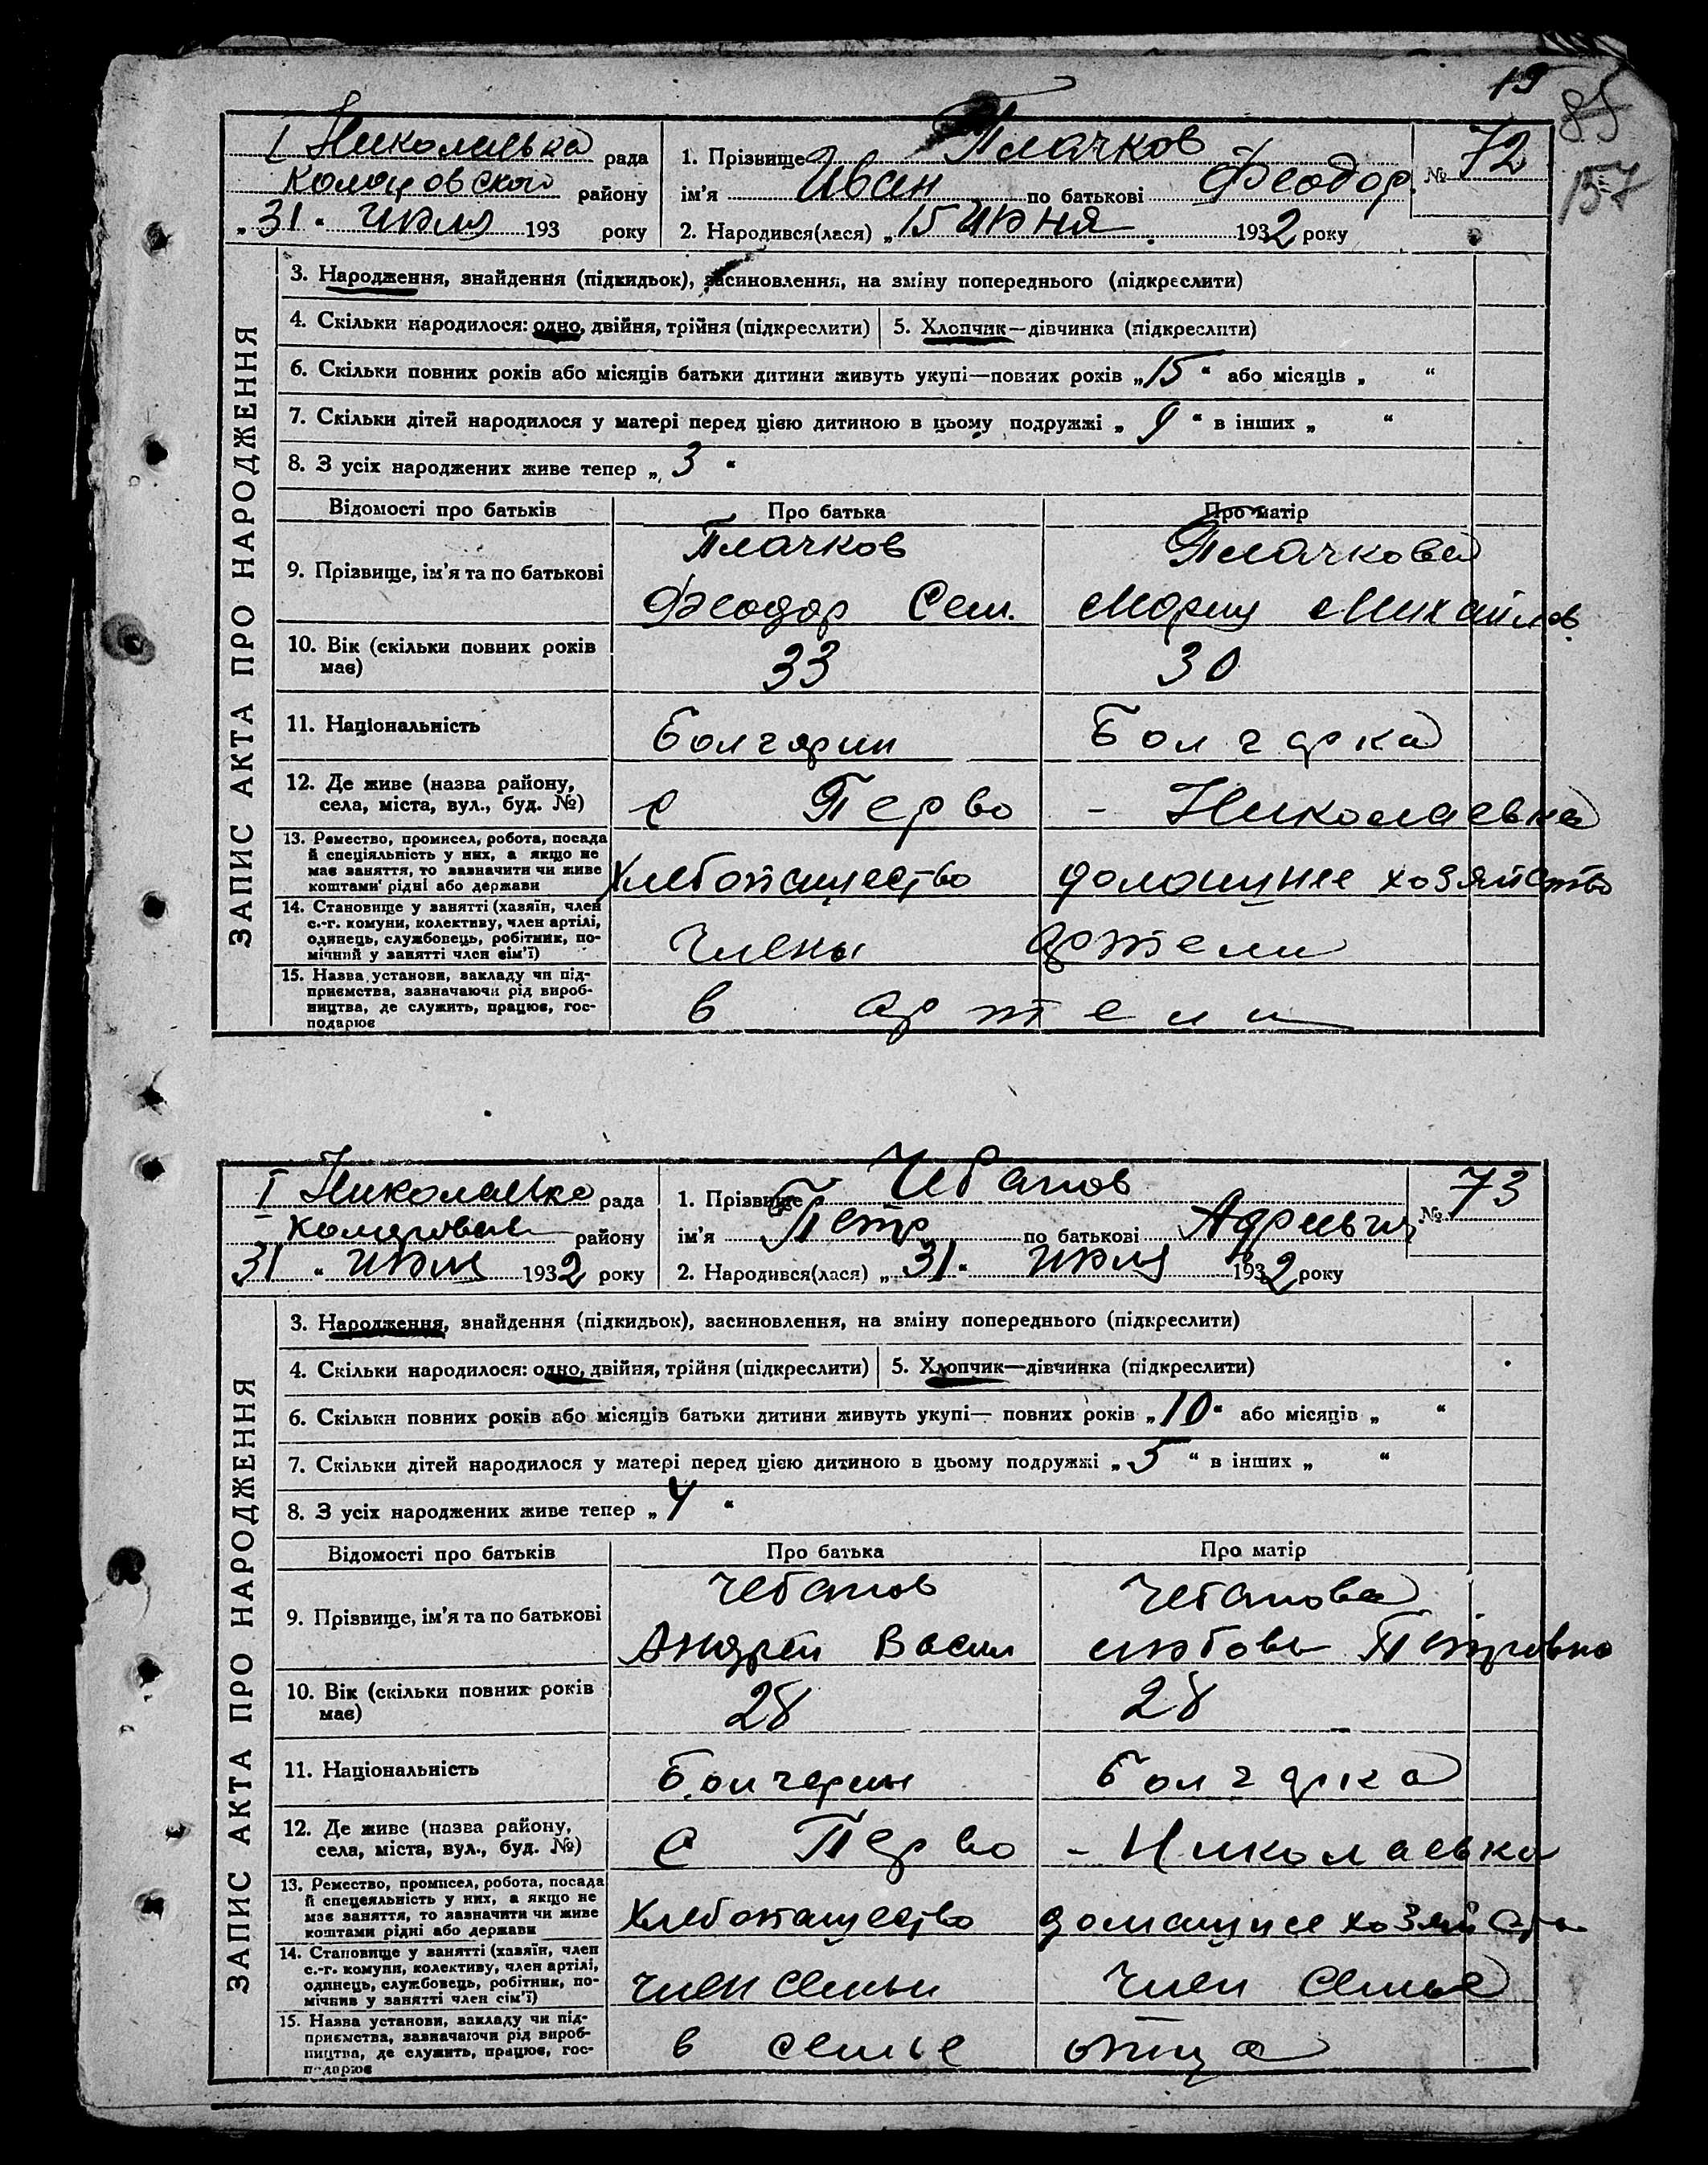 19
85
157
I Николаевка рада
Коларовского району
„31“ июля 193 року
1. Прізвище Плачков
ім’я Иван по батькові Феодор.
№ 72
2. Народився(лася) „15 июня 1932 року
ЗАПИС АКТА ПРО НАРОДЖЕННЯ
3. Народження, знайдення (підкидьок), засиновлення, на зміну попереднього (підкреслити)
4. Скільки народилося: одно, двійня, трійня (підкреслити) 5. Хлопчик—дівчинка (підкреслити)
6. Скільки повних років або місяців батьки дитини живуть укупі—повних років „15“ або місяців „ “
7. Скільки дітей народилося у матері перед цією дитиною в цьому подружжі „9“ в інших „ “
8. З усіх народжених живе тепер „3“
Відомості про батьків Про батька Про матір
9. Прізвище, ім’я та по батькові
Плачков
Феодор Сем.
Плачкова
Мария Михайлов.
10. Вік (скільки повних років
має)
33 30
11. Національність Болгарин Болгарка
12. Де живе (назва району,
села, міста, вул., буд. №)
с Перво - Николаевка
13. Ремество, промисел, робота, посада
й спеціяльність у них, а якщо не
має заняття, то зазначити чи живе
коштами рідні або держави
Хлебопашество домашнее хозяйство
14. Становище у занятті (хазяїн, член
с.-г. комуни, колективу, член артілі,
одинець, службовець, робітник, по-
мічний у занятті член сім’ї)
Члены артели
15. Назва установи, закладу чи під-
приємства, зазначаючи рід вироб-
ництва, де служить, працює, гос-
подарює
в артели
I Николаевка рада
району
31 “ июля 1932 року
1. Прізвище Чебанов
ім’я Петр по батькові
№ 73
2. Народився(лася) „31“ июля 1932 року
ЗАПИС АКТА ПРО НАРОДЖЕННЯ
3. Народження, знайдення (підкидьок), засиновлення, на зміну попереднього (підкреслити)
4. Скільки народилося: одно, двійня, трійня (підкреслити) 5. Хлопчик—дівчинка (підкреслити)
6. Скільки повних років або місяців батьки дитини живуть укупі— повних років „10“ або місяців „ “
7. Скільки дітей народилося у матері перед цією дитиною в цьому подружжі „5“ в інших „ “
8. З усіх народжених живе тепер „4“
Відомості про батьків Про батька Про матір
9. Прізвище, ім’я та по батькові
Чебанов
Андрей Васил
Чебанова
Любовь Петровна
10. Вік (скільки повних років
має)
28 28
11. Національність Болгарин Болгарка
12. Де живе (назва району,
села, міста, вул., буд. №)
С Перво - Николаевка
13. Ремество, промисел, робота, посада
й спецеяльність у них, а якщо не
має заняття, то зазначити чи живе
коштами рідні або держави
Хлебопашество домашнее хозяйство
14. Становище у занятті (хазяїн, член
с.-г. комуни, колективу, член артілі,
одинець, службовець, робітник, по-
мічнив у занятті член сім’ї)
член семьи член семье
15. Назва установи, закладу чи під-
приємства, зазначаючи рід вироб-
ництва, де служить, працює, гос-
подарює
в семье отца